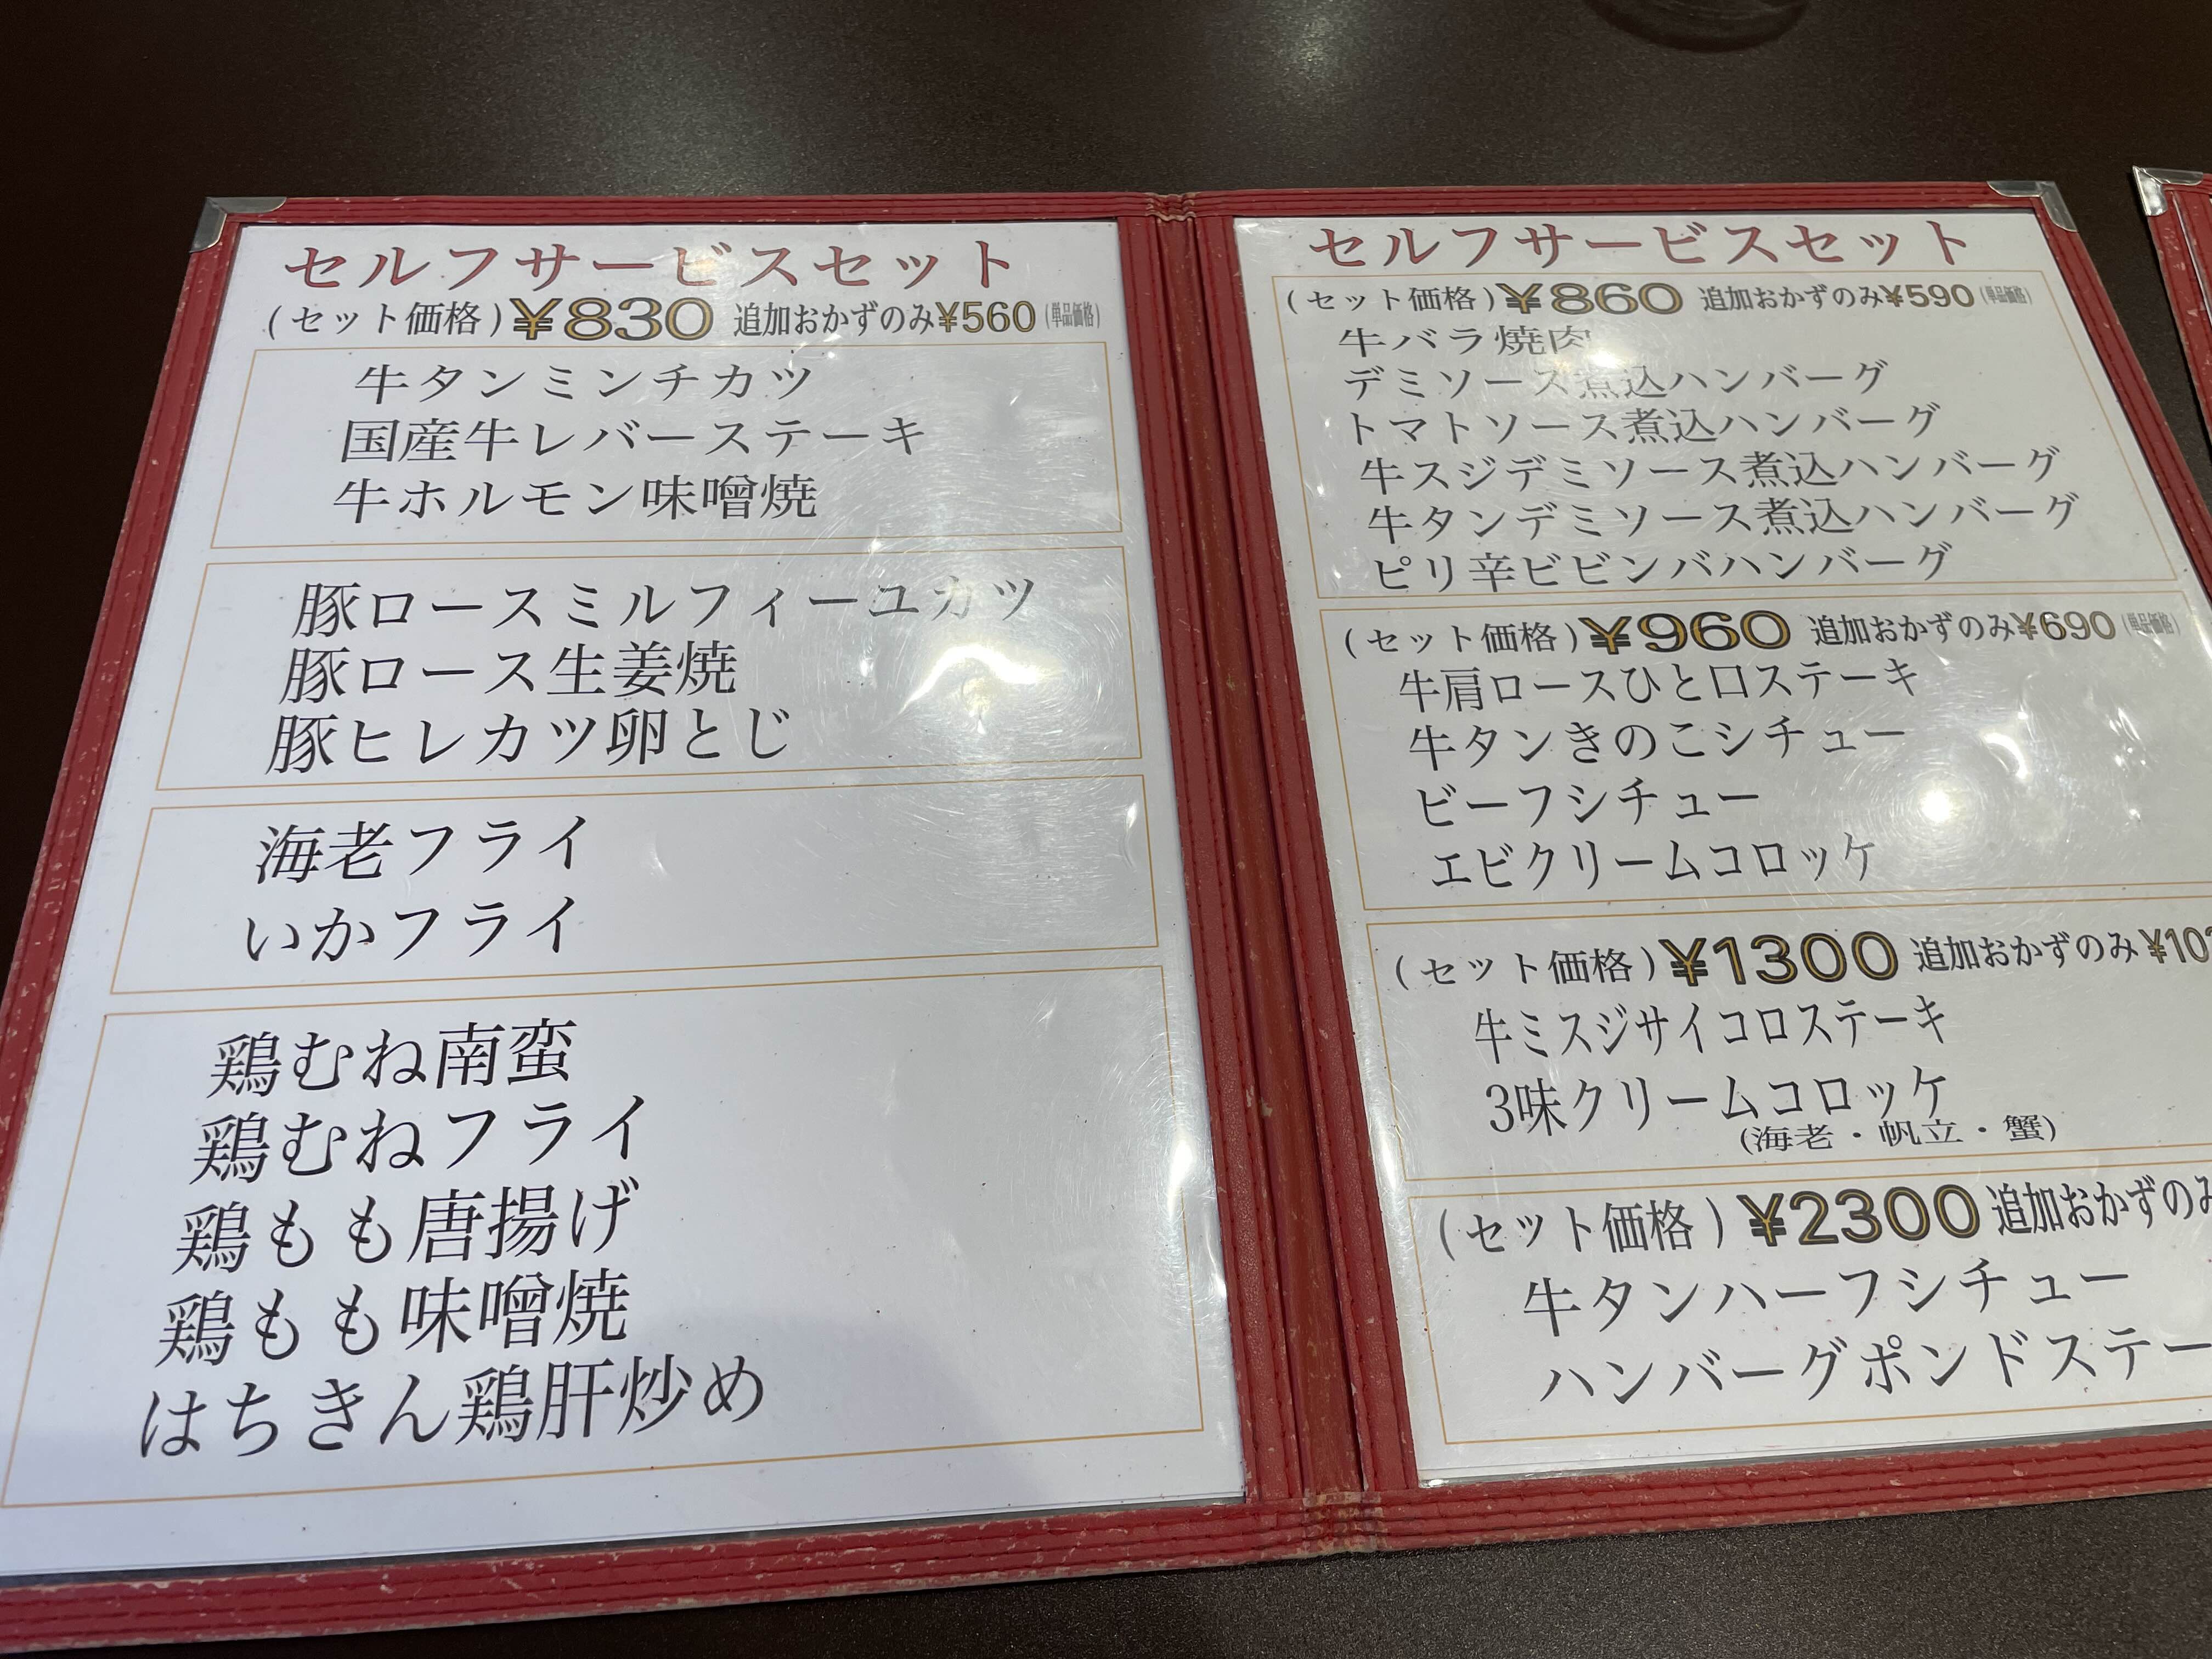 セルフサービスセット
(セット価格)¥830 追加おかずのみ¥560(単品価格)
牛タンミンチカツ
国産牛レバーステーキ
牛ホルモン味噌焼
豚ロースミルフィーユカツ
豚ロース生姜焼
豚ヒレカツ卵とじ
海老フライ
いかフライ
鶏むね南蛮
鶏むねフライ
鶏もも唐揚げ
鶏もも味噌焼
はちきん鶏肝炒め
セルフサービスセット
(セット価格)¥860 追加おかずのみ¥590(単品価格)
牛バラ焼肉
デミソース煮込ハンバーグ
トマトソース煮込ハンバーグ
牛スジデミソース煮込ハンバーグ
牛タンデミソース煮込ハンバーグ
ピリ辛ビビンバハンバーグ
(セット価格)¥960 追加おかずのみ¥690(単品価格)
牛肩ロースひと口ステーキ
牛タンきのこシチュー
ビーフシチュー
エビクリームコロッケ
(セット価格)¥1300 追加おかずのみ
牛ミスジサイコロステーキ
3味クリームコロッケ
(海老・帆立・蟹)
(セット価格)¥2300 追加おかずのみ
牛タンハーフシチュー
ハンバーグポンドステー